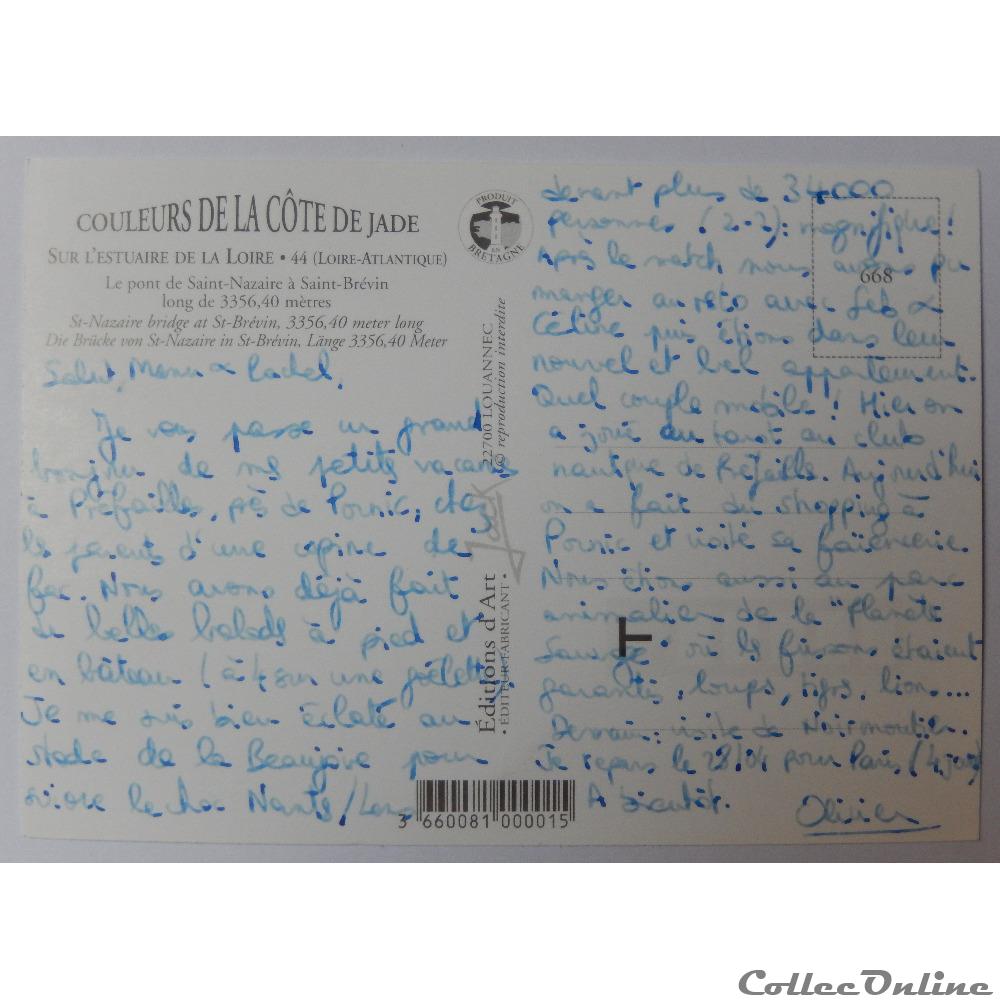 COULEURS DE LA CÔTE DE JADE
SUR L'ESTUAIRE DE LA LOIRE • 44 (LOIRE-ATLANTIQUE)
Le pont de Saint-Nazaire à Saint-Brévin
long de 3356,40 mètres
St-Nazaire bridge at St-Brévin, 3356,40 meter long
Die Brücke von St-Nazaire in St-Brévin, Länge 3356,40 Meter
PRODUIT EN BRETAGNE
Salut, Manu & Rachel,
Je vous passe un grand
bonjour de mes petites vacances
à Préfailles, près de Pornic, chez
les parents d'une copine de
fac. Nous avons déjà fait
de belles balades à pied et
en bâteau (à 4 sur une goélette)
Je me suis bien éclaté au
stade de la Beaujoire pour
suivre le choc Nantes/Lens
Éditions d'Art Jack
• ÉDITEUR-FABRICANT •
22700 LOUANNEC
© reproduction interdite
3 660081 000015
devant plus de 34000
personnes (2-2): magnifique!
Après le match nous avons pu
manger au resto avec Seb &
Céline puis étions dans leur
nouvel et bel appartement.
Quel couple mobile! Hier on
a joué au tarot au club
nautique de Préfailles. Aujourd'hui
on a fait du shopping à
Pornic et visité sa faïencerie.
Nous étions aussi au parc
animalier de la "Planète
Sauvage" où les frissons étaient
garantis, loups, tigres, lions...
Demain: visite de Noirmoutier.
Je repars le 28/04 pour Paris (4 jours)
A bientôt.
Olivier
668
T
CollecOnline